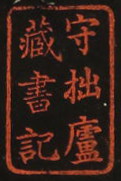 守拙廬
藏書記